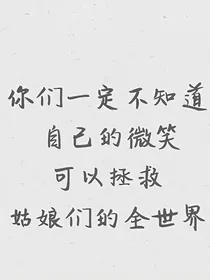 你们一定不知道
自己的微笑
可以拯救
姑娘们的全世界